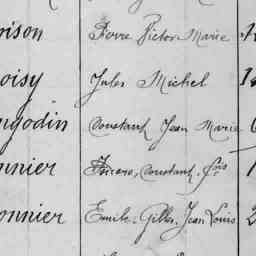 rison Pierre Victor Marie
oisy Jules Michel
ngodin Constant Jean Marie
nnier Constant, fois
onnier Emile, Gilles, Jean Louis 2